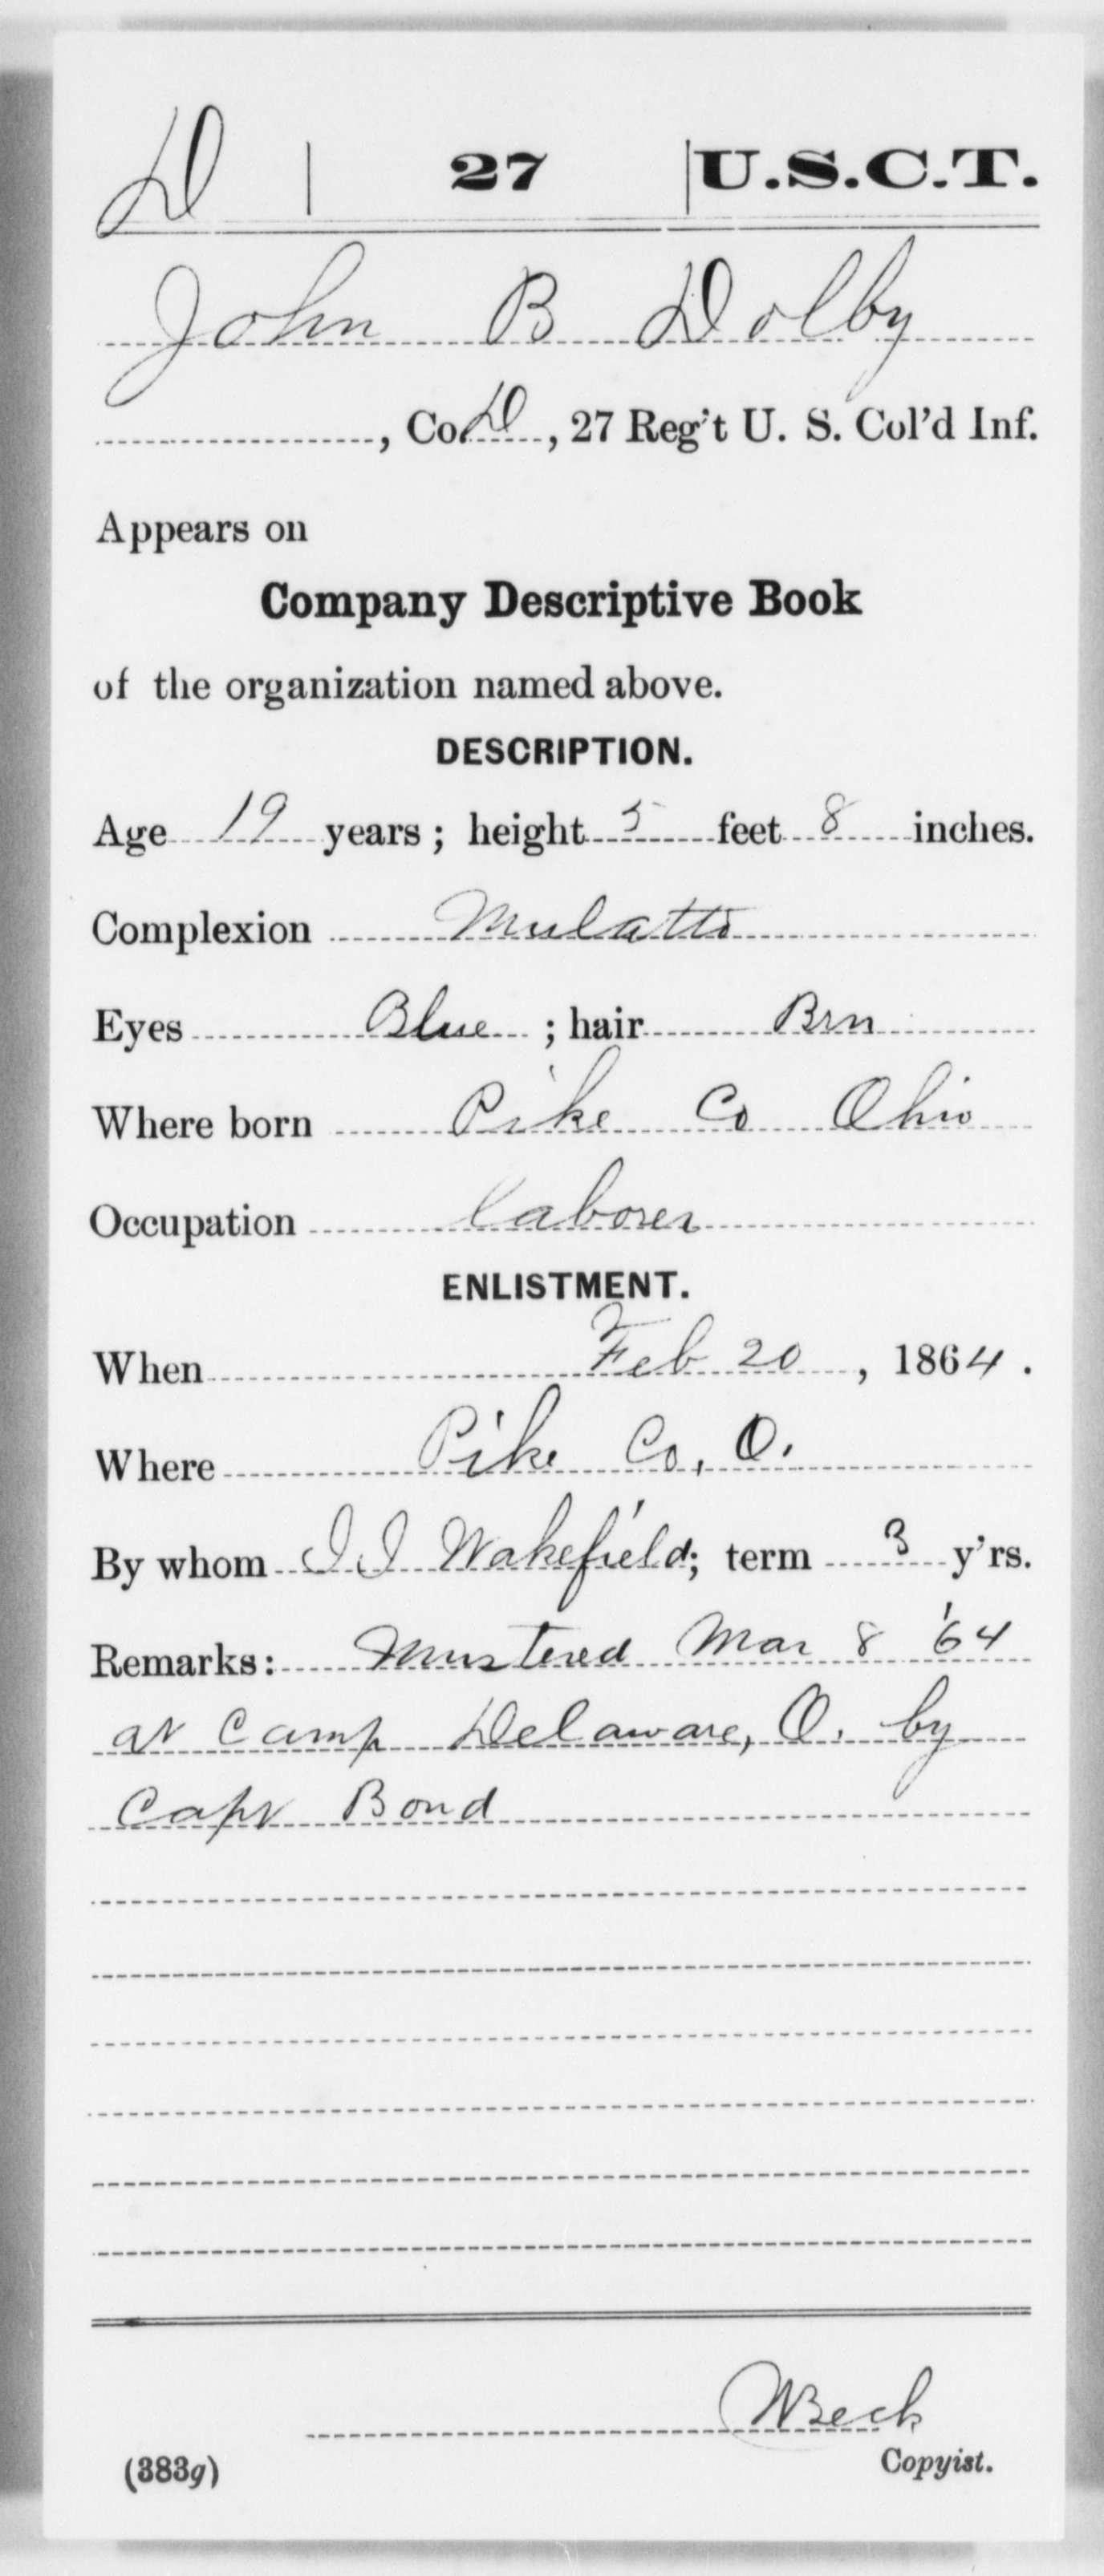 D | 27 | U.S.C.T.
John B Dolby
, Co. D, 27 Reg't U. S. Col'd Inf.
Appears on
Company Descriptive Book
of the organization named above.
DESCRIPTION.
Age 19 years; height 5 feet 8 inches.
Complexion Mulatto
Eyes Blue; hair Brn
Where born Pike Co Ohio
Occupation laborer
ENLISTMENT.
When Feb 20, 1864.
Where Pike Co, O.
By whom I I Wakefield; term 3 y'rs.
Remarks: Mustered Mar 8 '64
at Camp Delaware, O. by
Capt Bond
WBeck
(383g) Copyist.